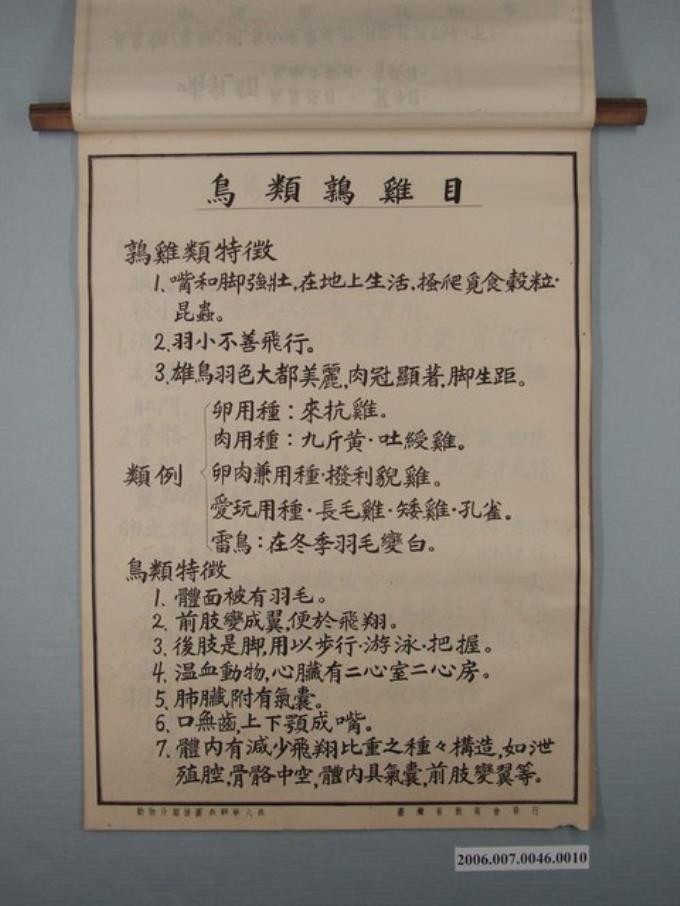 鳥類鶉雞目
鶉雞類特徵
1. 嘴和脚強壯,在地上生活,搔爬覓食穀粒·
昆蟲。
2. 羽小不善飛行。
3. 雄鳥羽色大都美麗,肉冠顯著,脚生距。
類例
卵用種:來抗雞。
肉用種:九斤黃·吐綬雞。
卵肉兼用種·撥利貌雞。
愛玩用種·長毛雞·矮雞·孔雀。
雷鳥:在冬季羽毛變白。
鳥類特徵
1. 體面被有羽毛。
2. 前肢變成翼,便於飛翔。
3. 後肢是脚,用以步行·游泳·把握。
4. 温血動物,心臟有二心室二心房。
5. 肺臟附有氣囊。
6. 口無齒,上下顎成嘴。
7. 體內有減少飛翔比重之種々構造,如泄
殖腔,骨骼中空,體內具氣囊,前肢變翼等。
臺灣省教育會發行
2006.007.0046.0010